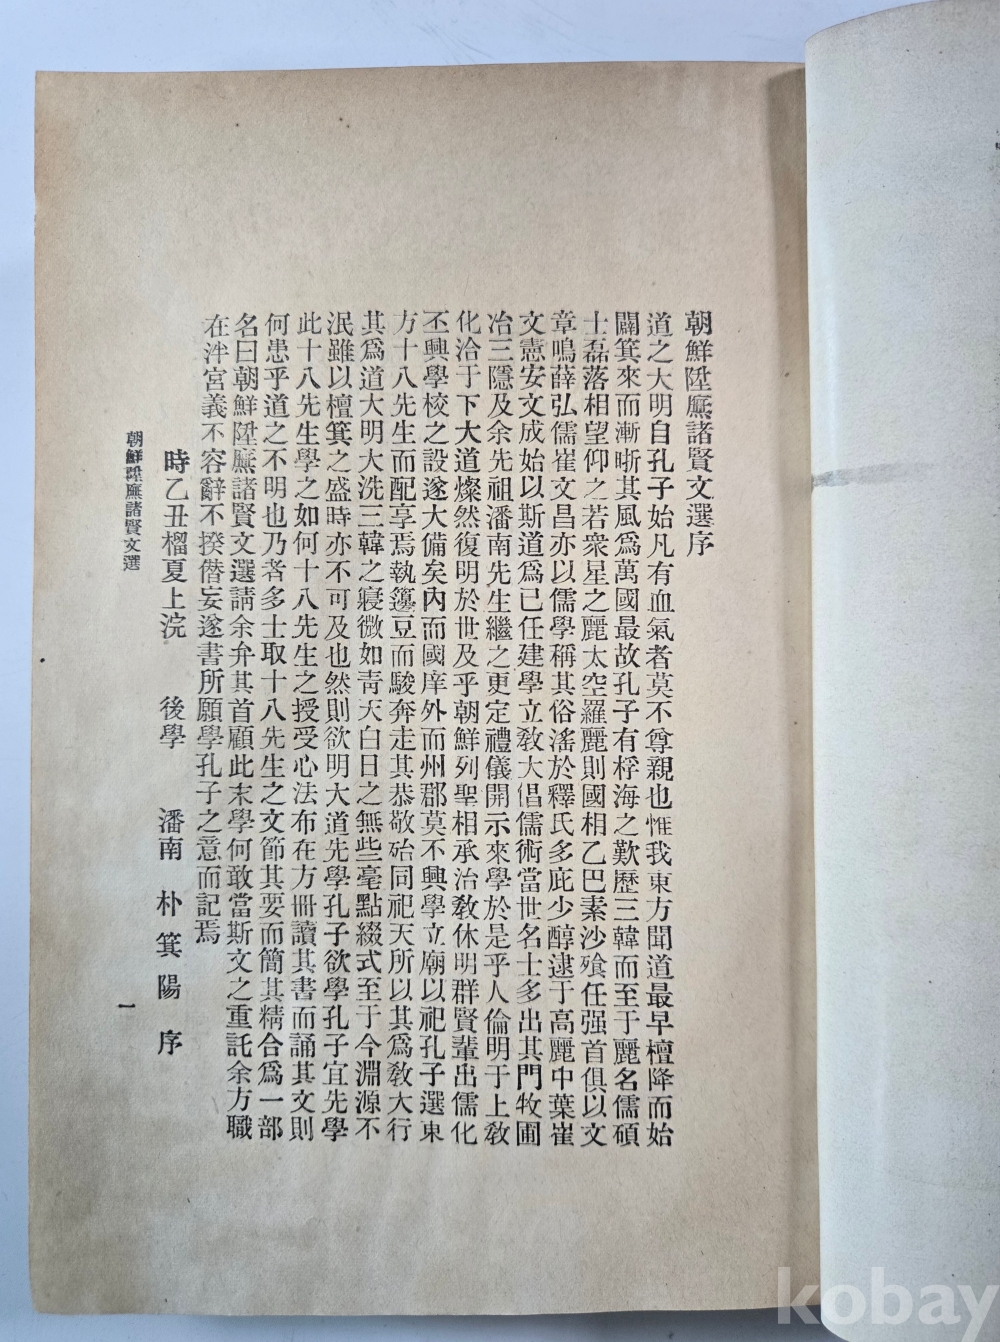 朝鮮陞廡諸賢文選序
道之大明自孔子始凡有血氣者莫不尊親也惟我東方聞道最早檀降而始
闢箕來而漸晣其風爲萬國最故孔子有桴海之歎歷三韓而至于麗名儒碩
士磊落相望仰之若衆星之麗太空羅麗則國相乙巴素沙飱任强首俱以文
章鳴薛弘儒崔文昌亦以儒學稱其俗滛於釋氏多庇少醇逮于高麗中葉崔
文憲安文成始以斯道爲已任建學立敎大倡儒術當世名士多出其門牧圃
冶三隱及余先祖潘南先生繼之更定禮儀開示來學於是乎人倫明于上敎
化洽于下大道燦然復明於世及乎朝鮮列聖相承治敎休明群賢輩出儒化
丕興學校之設遂大備矣內而國庠外而州郡莫不興學立廟以祀孔子選東
方十八先生而配享焉執籩豆而駿奔走其恭敬殆同祀天所以其爲敎大行
其爲道大明大洗三韓之寢微如靑天白日之無些毫點綴式至于今淵源不
泯雖以檀箕之盛時亦不可及也然則欲明大道先學孔子欲學孔子宜先學
此十八先生學之如何十八先生之授受心法布在方冊讀其書而誦其文則
何患乎道之不明也乃者多士取十八先生之文節其要而簡其精合爲一部
名曰朝鮮陞廡諸賢文選請余弁其首顧此末學何敢當斯文之重託余方職
在泮宮義不容辭不揆僭妄遂書所願學孔子之意而記焉
時乙丑榴夏上浣 後學 潘南 朴箕陽 序
朝鮮陞廡諸賢文選
一
kobay